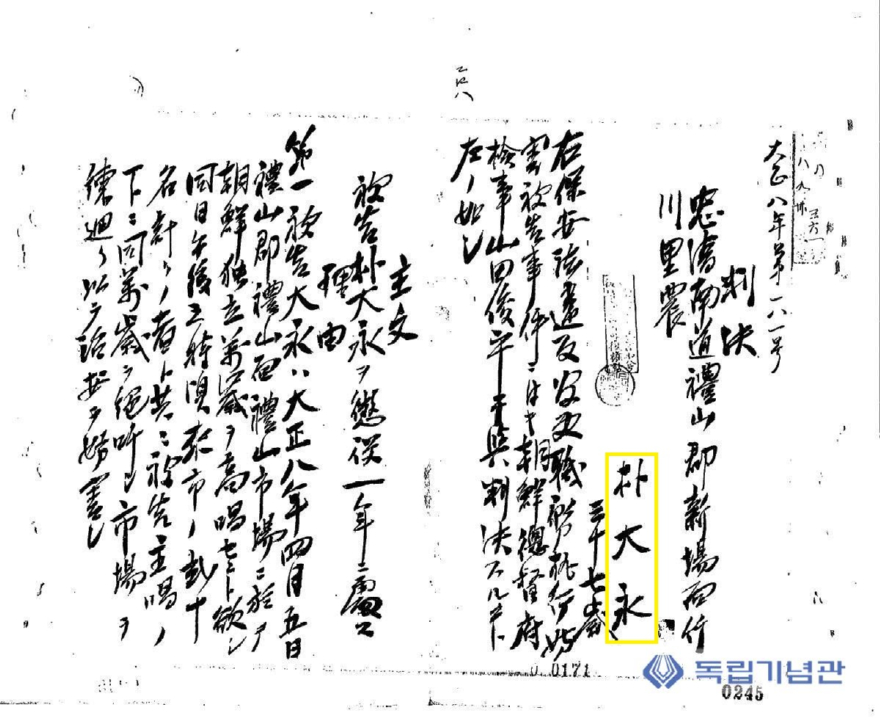 二四八
大正八年第一八一号
判決
忠清南道禮山郡新場面行
川里農
朴大永
三十七歳
右保安法違反公吏職務執行妨
害被告事件ニ付キ朝鮮總督府
検事山田俊平干與判決スルコト
左ノ如シ
主文
被告朴大永ヲ懲役一年ニ處ス
理由
第一被告大永ハ大正八年四月五日
禮山郡禮山面禮山市場ニ於テ
朝鮮独立萬歳ヲ高唱セント欲シ
同日午後三時頃該市ノ数十
名計リノ者ト共ニ被告主唱ノ
下ニ同萬歳ヲ絶叫シ市場ヲ
練廻リ以テ治安ヲ妨害シ
0171
독립기념관
0245